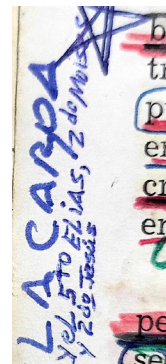 LA CARPA
y el 5to ELiAS, 2 do Moises
2do Jesús
b
tr
p
en
cr
en
pe
se